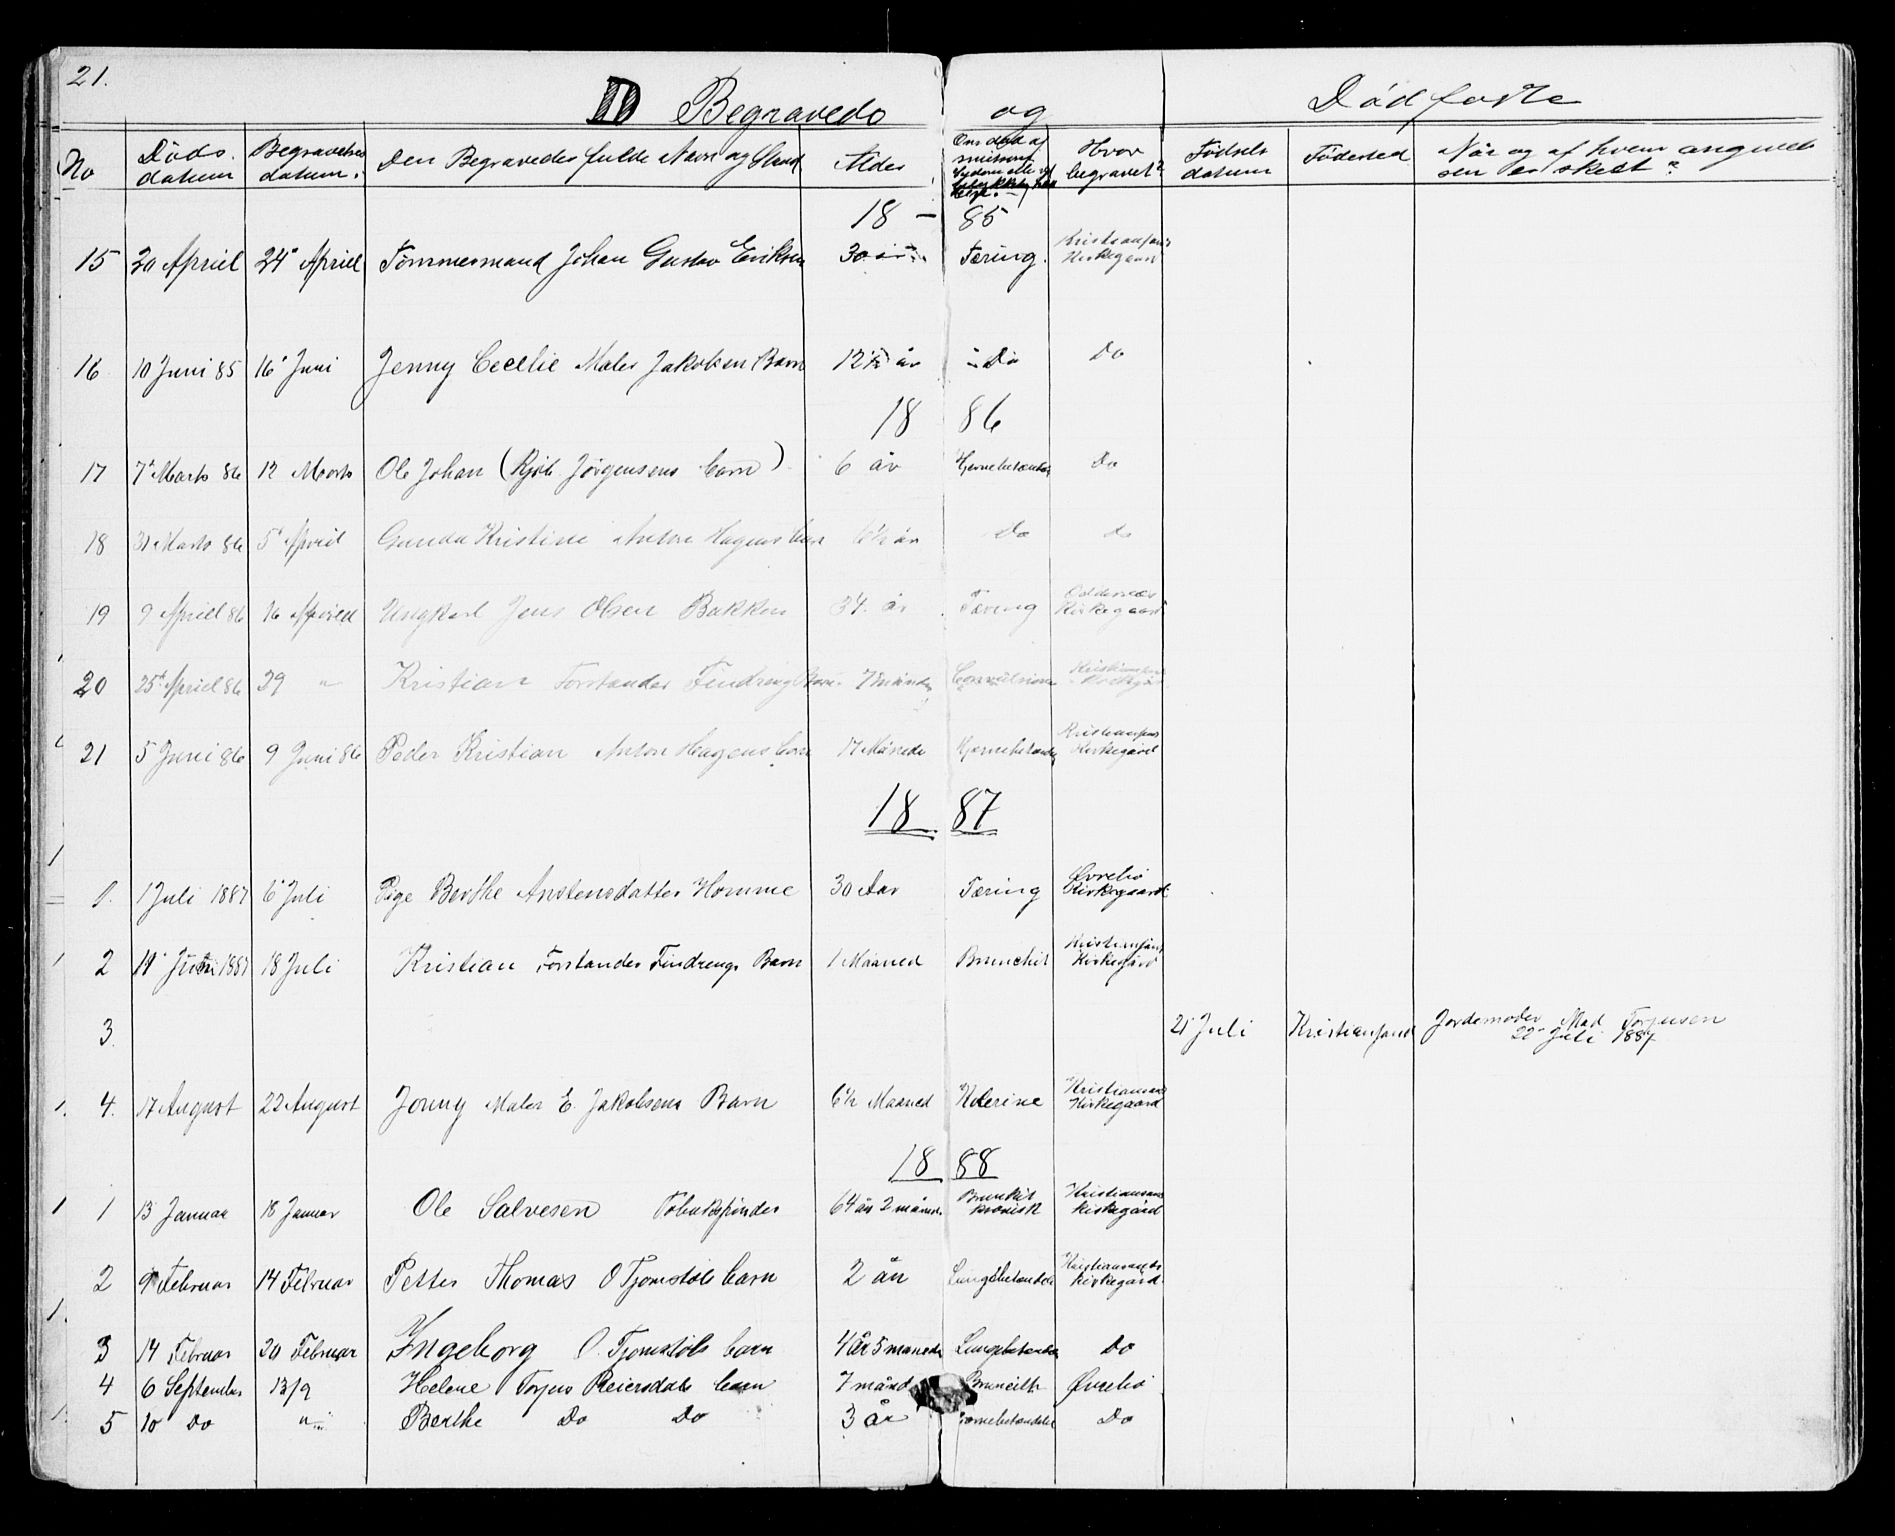 21.
D Begravede og Dødføtte
No Döds datum Begravelses datum. Den Begravedes fulde Navn og Stand Alder Om död af Hvor begravet? Födsels datum Födested Når og af hvem anmeldelsen er skedt?
18 - 85
15 20 Apriel 24' Apriel Tömmermand Johan Gustav Eriksen 30 år Tæring. Kristiansand Kirkegaard
16 10 Juni 85 16' Juni Jenny Cecelie Maler Jakobsen Barn 12 ½ år " Do Do
18 86
17 7' Marts 86 12 Marts Ole Johan (Kjöb. Jörgensens barn) 6 år Hjernebetændelse Do
18 31 Marts 86 5' Apriel Gunda Kristine Anton Hagens barn 6½ år Do do
19 9 Apriel 86 16 Apriel Ungkarl Jens Olsen Bakken 34. år Tæring Oddernæs Kirkegaard
20 25' Apriel 86 29 " Kristian Forstander Findreng Barn 7 Måneder Convulsioner Kristiansand Kirkegård
21 5 Juni 86 9 Juni 86 Peder Kristian Anton Hagens barn 17 Månede Hjernebetændelse Kristiansand Kirkegård
18 87
1. 1 Juli 1887 6' Juli Pige Berthe Anstensdatter Homme 30 Aar Tæring Øvrebö Kirkegaard
2 14' Juli 1887 18 Juli Kristian Forstander Findrengs Barn 1 Maaned Brunchit Kristiansand Kirkegård
3. 21 Juli Kristiansand Jordemoder Mad Torjusen 22' Juli 1887
4. 17 August 22 August Jonny Maler E. Jakobsens Barn 6½ Maaned Kolerine Kristiansand Kirkegaard
18 88
1 13 Januar 18 Januar Ole Salvesen Tobakspinder 64 år 2 måned. Brunkit kronisk Kristiansand kirkegård
2 9 Februar 14 Februar Petter Thomas O Tjomstöls barn 2 år Lungebetændelse Kristiansands kirkegård
3 14 Februar 20 Februar Ingeborg O. Tjomstöls barn 4 år 5 maneder Lungebetændelse Do
4 6 September 13/9 Helene Torjus Reiersdals barn 7 månd Bruncith Øvrebö
5 10 Do " Berthe Do Do 3 år Hjernebetændelse Do